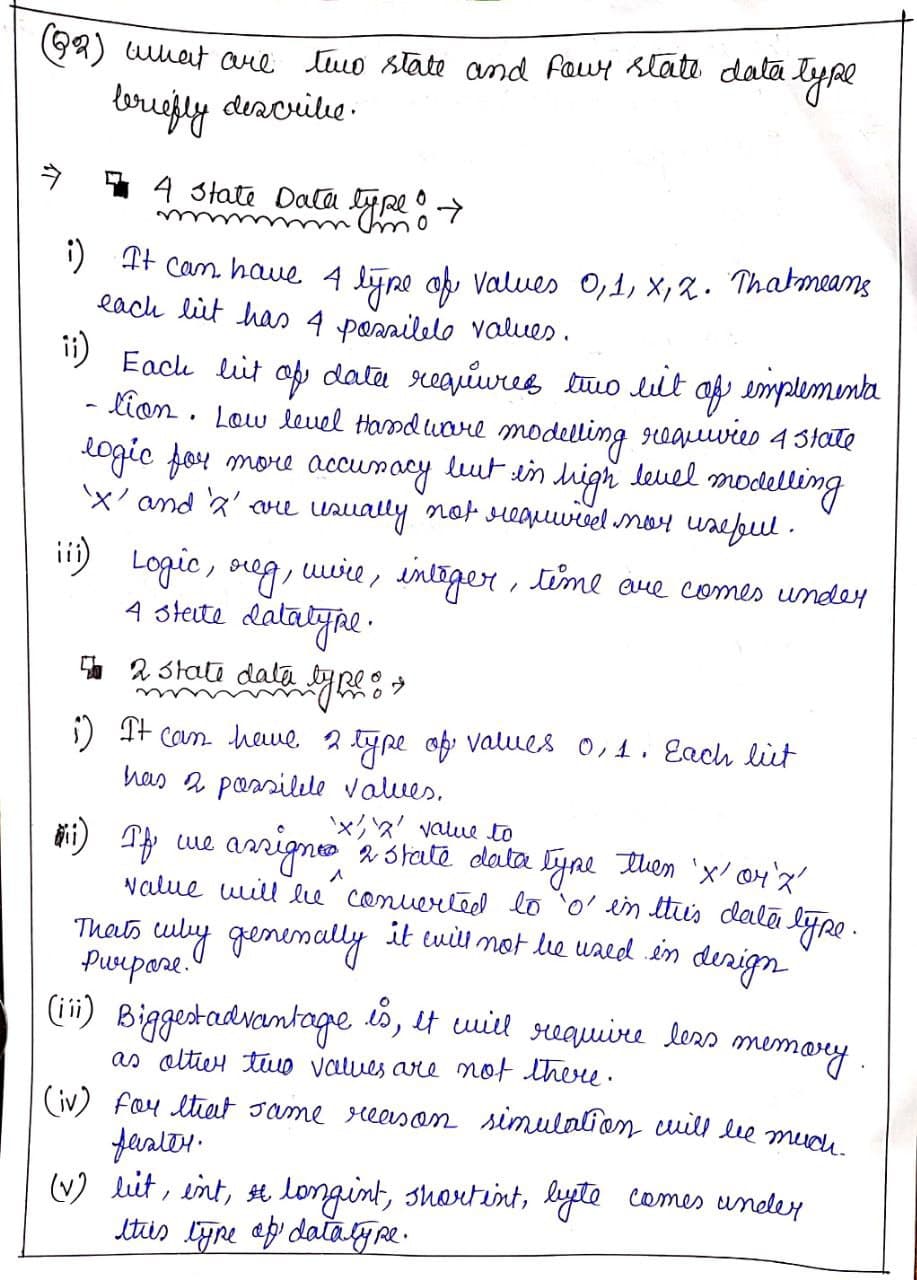 (Q2) What are two state and four state data type
briefly describe.
⇒ 4 State Data type: →
i) It can have 4 type of values 0,1, x,z. That means
each bit has 4 possible values.
ii) Each bit of data requires two bit of implementa
- tion. Low level Hardware modelling requires 4 state
logic for more accuracy but in high level modelling
'x' and 'z' are usually not required nor useful.
iii) Logic, reg, wire, integer, time are comes under
4 state datatype.
2 state data type: →
i) It can have 2 type of values 0,1. Each bit
has 2 possible values.
'x','z' value to
ii) If we assign 2 state data type then 'x' or 'z'
value will be converted to '0' in this data type.
Thats why generally it will not be used in design
Purpose.
(iii) Biggest advantage is, it will require less memory
as other two values are not there.
(iv) For that same reason simulation will be much
faster.
(v) bit, int, longint, shortint, byte comes under
this type of datatype.